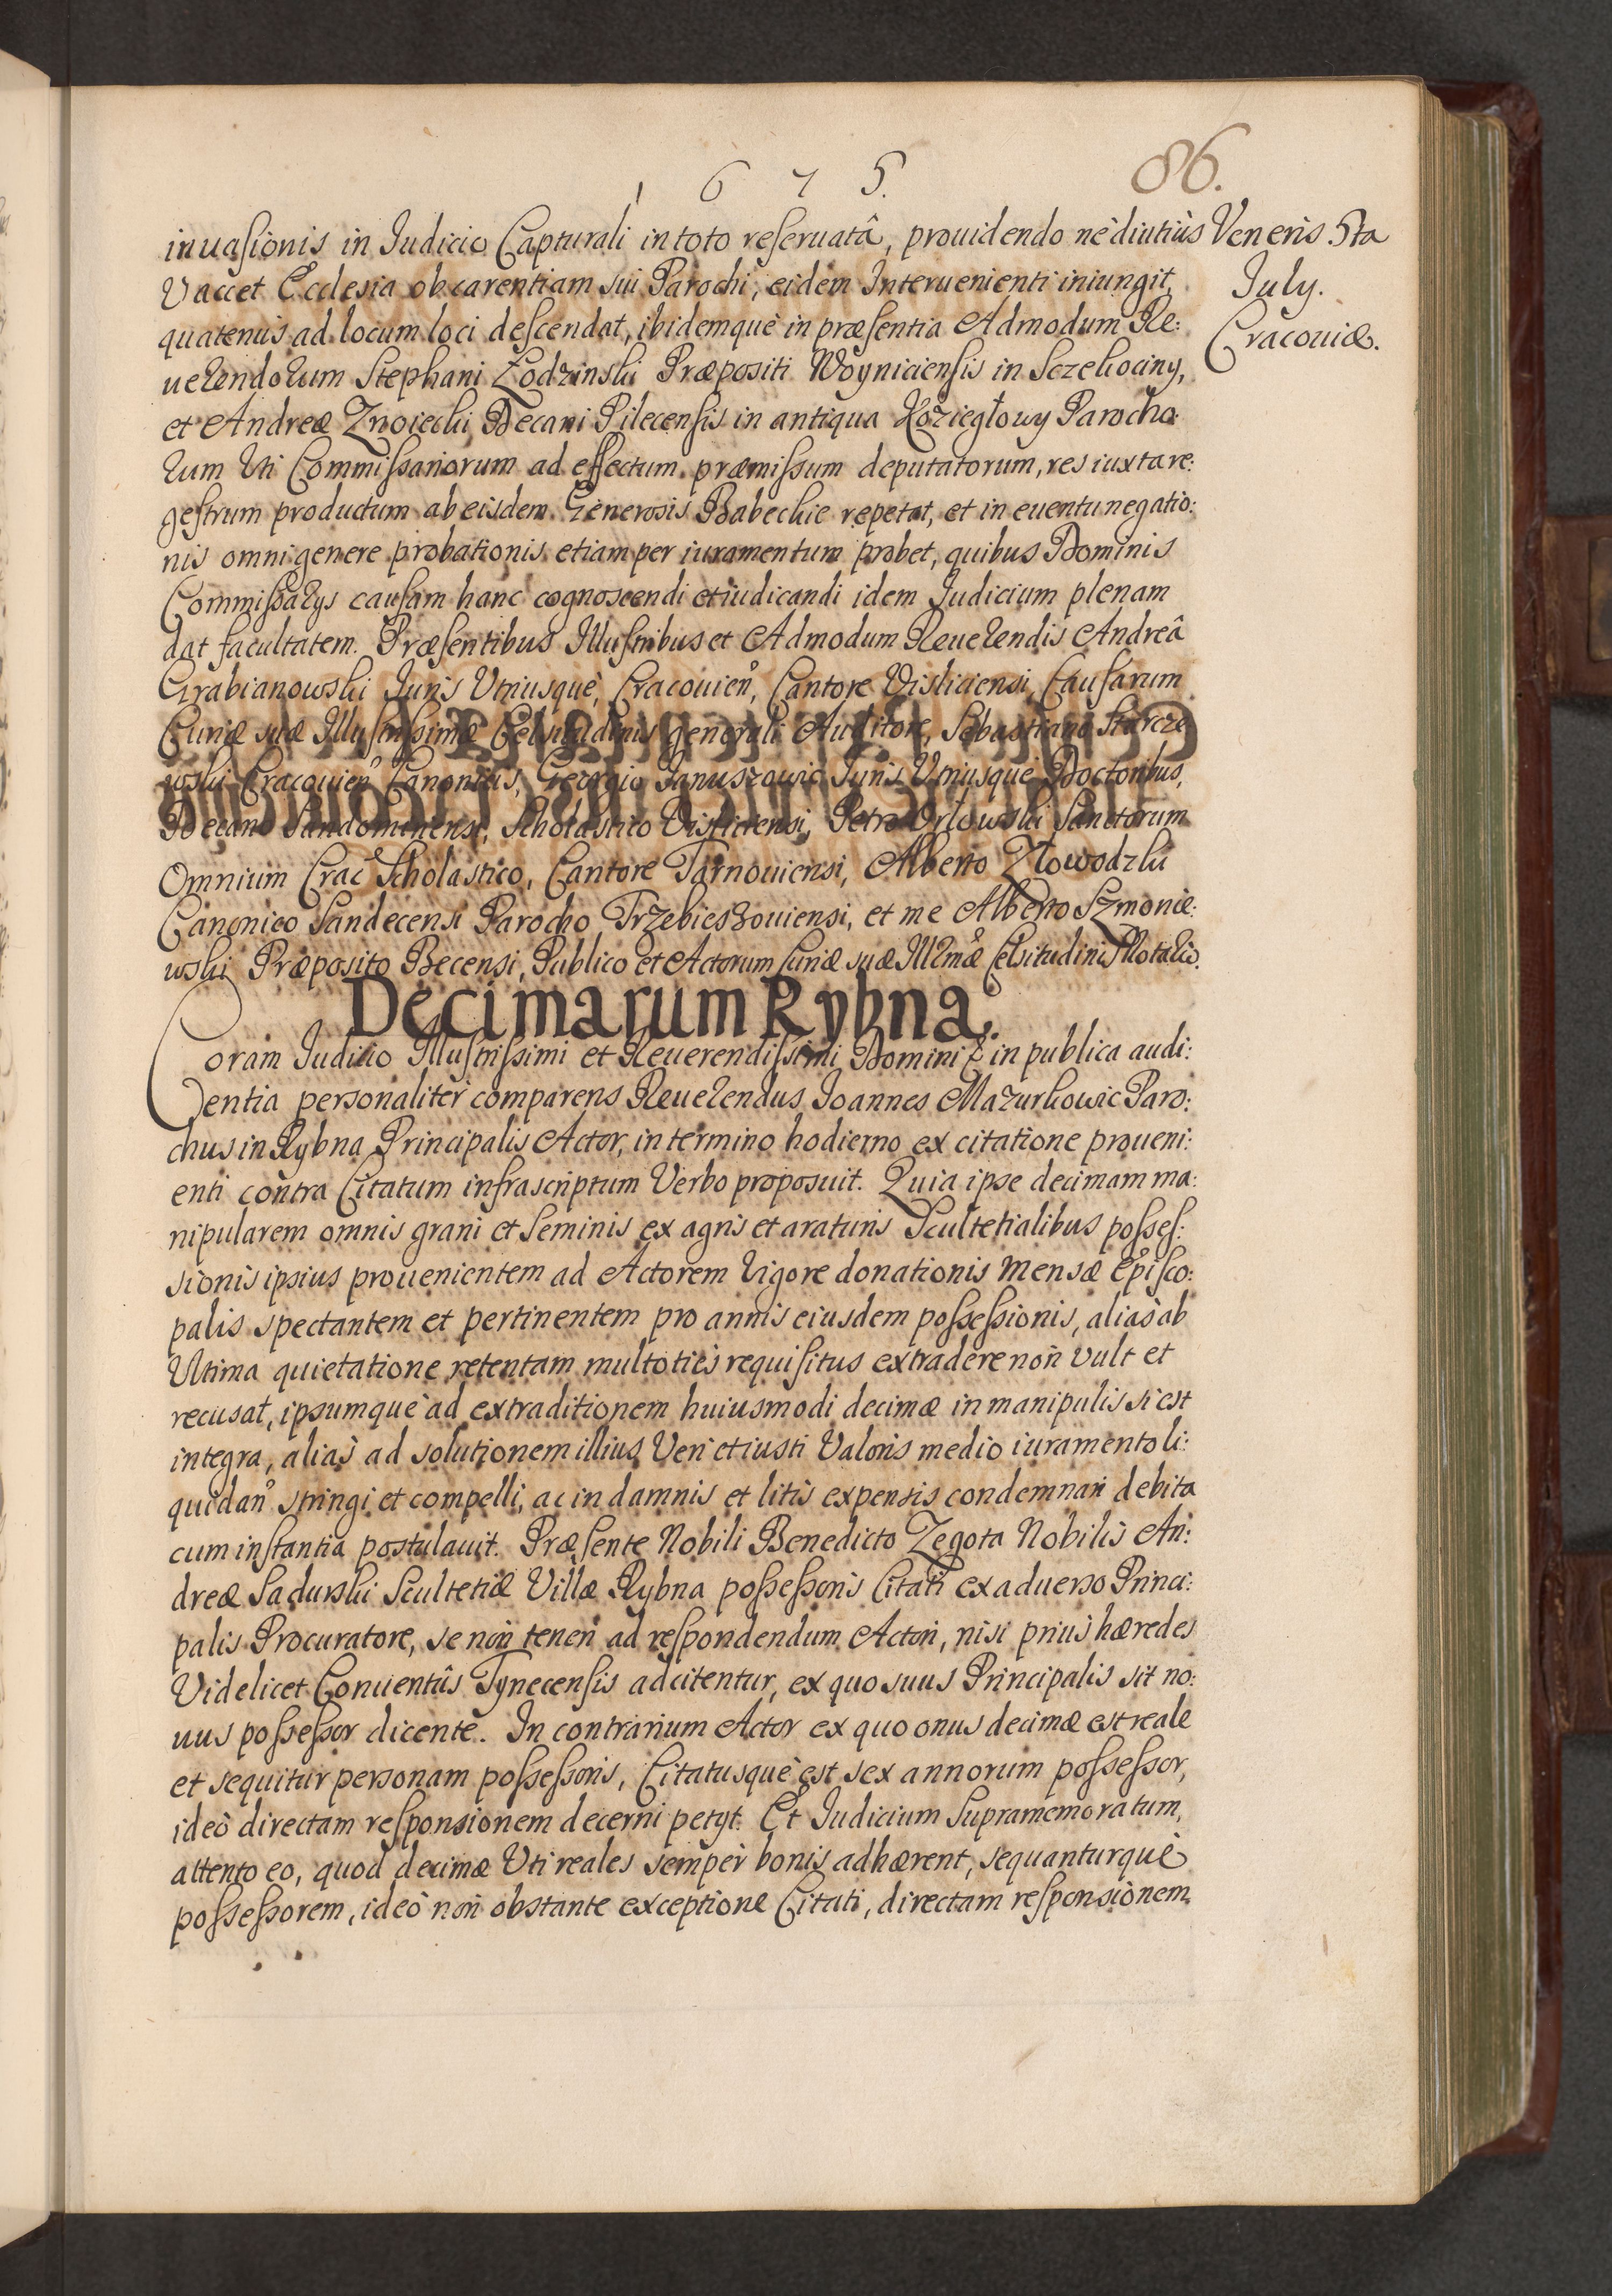 1675.
86.
inuasionis in Iudicio Capturali in toto reseruatâ, prouidendo nè diutiùs
Veneris 5ta
July.
Cracouiæ.
Vaccet Ecclesia ob carentiam sui Parochi, eidem Interuenienti iniungit,
quatenus ad locum loci descendat, ibidemquè in præsentia Admodum Re:
uerendorum Stephani Łodzinski Præpositi Woyniciensis in Sczekociny,
et Andreæ Znoiecki Decani Pilecensis in antiqua Koziegłowy Parocho:
rum Vti Commissariorum ad effectum præmissum deputatorum, res iuxta re:
gestrum productum ab eisdem Generosis Babeckie repetat, et in euentu negatio:
nis omni genere probationis etiam per iuramentum probet, quibus Dominis
Commissarys causam hanc cognoscendi et iudicandi idem Iudicium plenam
dat facultatem. Præsentibus Illustribus et Admodum Reuerendis Andreâ
Grabianowski Iuris Vtriusquè, Cracouien, Cantore Visliciensi, Causarum
Curiæ suæ Illustrissimæ Celsitudinis generali Auditore, Sebastiano Starcze
wski Cracouien Canonicis, Georgio Januszowic Iuris Vtriusquè Doctoribus,
Decano Sandomiriensi, Scholastico Visliciensi, Petro Orłowski Sanctorum
Omnium Crac Scholastico, Cantore Tarnouiensi, Alberto Złowodzki
Canonico Sandecensi Parocho Trzebieszouiensi, et me Alberto Szmonie:
wski Præposito Becensi, Publico et Actorum Curiæ suæ Illmæ Celsitudinis Notario.
Decimarum Rybna.
Coram Iudicio Illustrissimi et Reuerendissimi Domini & in publica audi:
entia personaliter comparens Reuerendus Joannes Mazurkowic Paro:
chus in Rybna Principalis Actor, in termino hodierno ex citatione proueni:
enti contra Citatum infrascriptum Verbo proposuit. Quia ipse decimam ma:
nipularem omnis grani et seminis ex agris et araturis Scultetialibus posses:
sionis ipsius prouenientem ad Actorem Vigore donationis Mensæ Episco:
palis spectantem et pertinentem pro annis eiusdem possessionis, aliàs ab
Vltima quietatione retentam multotiès requisitus extradere non vult et
recusat, ipsumquè ad extraditionem huiusmodi decimæ in manipulis si est
integra, aliàs ad solutionem illius Veri et iusti Valoris medio iuramento li:
quidan stringi et compelli, ac in damnis et litis expensis condemnari debita
cum instantia postulauit. Præsente Nobili Benedicto Zegota Nobilis An:
dreæ Sadurski Scultetiæ Villæ Rybna possessoris Citati ex aduerso Princi:
palis Procuratore, se non teneri ad respondendum Actori, nisi priùs hæredes
Videlicet Conuentûs Tynecensis adcitentur, ex quo suus Principalis sit no:
uus possessor dicente. In contrarium Actor ex quo onus decimæ est reale
et sequitur personam possessoris, Citatusquè est sex annorum possessor,
ideò directam responsionem decerni petyt. Et Iudicium Supramemoratum,
attento eo, quod decimæ Vti reales sempèr bonis adhærent, sequanturquè
possessorem, ideò non obstante exceptione Citati, directam responsionem